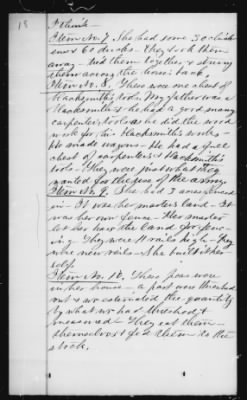 18
I think—
Item No. 7. She had some 30 chickens & 60 ducks. They took them
away— tied them together & strung
them across the horse's back.
Item No. 8. There was one chest of
blacksmith's tools. My father was a
blacksmith & he had a good many
carpenter's tools as he did the wood
work for his blacksmith's works—
He made wagons. He had a full
chest of carpenter's & blacksmith's
tools. They were just what they
wanted for the use of the army.
Item No. 9. She had 3 acres fenced
in— It was her master's land— It
was her own fence— Her master
let her have the land for fencing. They were 11 rails high— They
were new rails— She built it her
self.
Item No. 10. These peas were
in her house— a part were threshed
out & we estimated the quantity
by what we had threshed &
measured— They eat them
themselves & fed them to the
stock.